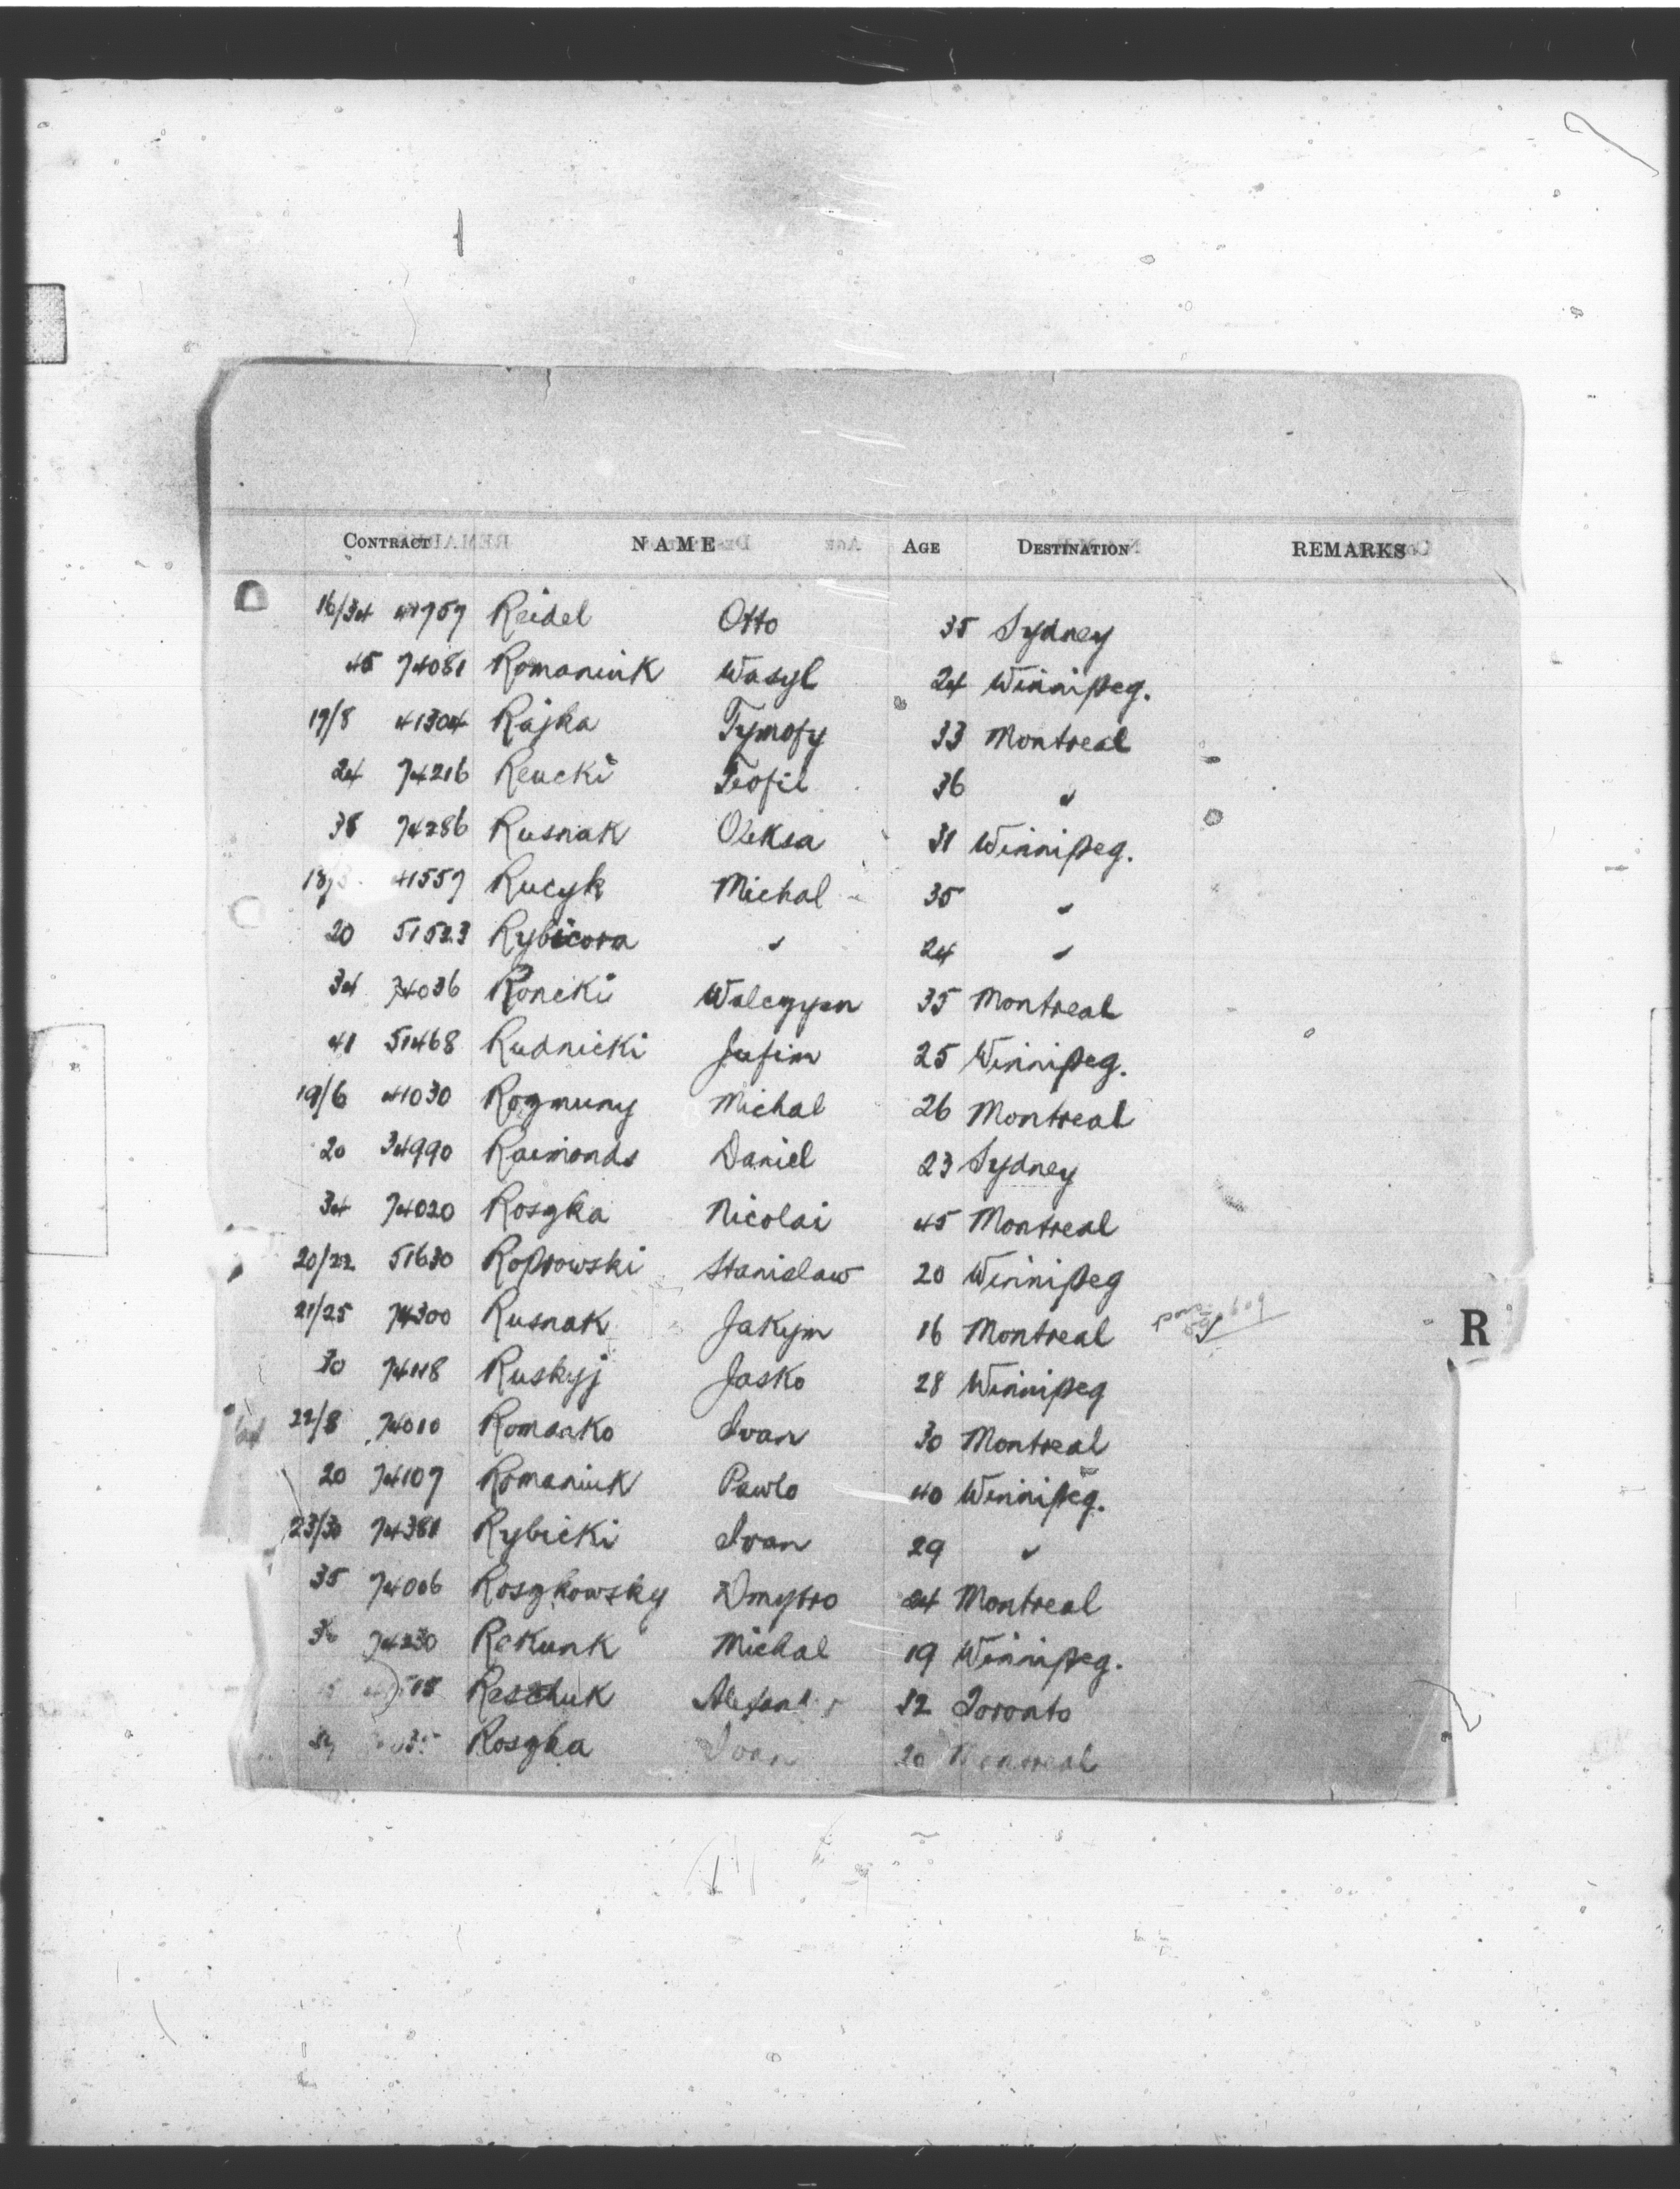 CONTRACT NAME AGE DESTINATION REMARKS
16/34 41757 Reidel Otto 35 Sydney
45 74081 Romaniuk Wasyl 24 Winnipeg.
19/8 41304 Rajka Tymofy 33 Montreal
24 74216 Reucki Teofil 36 "
38 74286 Rusnak Oleksa 31 Winnipeg.
41557 Rucyk Michal 35 "
20 51523 Rybicora " 24 "
34 74036 Roncki Walczysn 35 Montreal
41 51468 Rudnicki Jufim 25 Winnipeg.
19/6 41030 Rozmuny Michal 26 Montreal
20 34990 Raimonds Daniel 23 Sydney
34 74020 Roszka Nicolai 45 Montreal
20/22 51630 Roprowski Stanislaw 20 Winnipeg
21/25 74300 Rusnak Jakym 16 Montreal
R
30 74118 Ruskyj Jasko 28 Winnipeg
22/8 74010 Romanko Ivan 30 Montreal
20 74107 Romaniuk Pawlo 40 Winnipeg.
23/30 74381 Rybicki Ivan 29 "
35 74006 Roszkowsky Dmytro 24 Montreal
36 74230 Rekunk Michal 19 Winnipeg.
Reschuk 32 Toronto
Roszka Ivan 20 Montreal